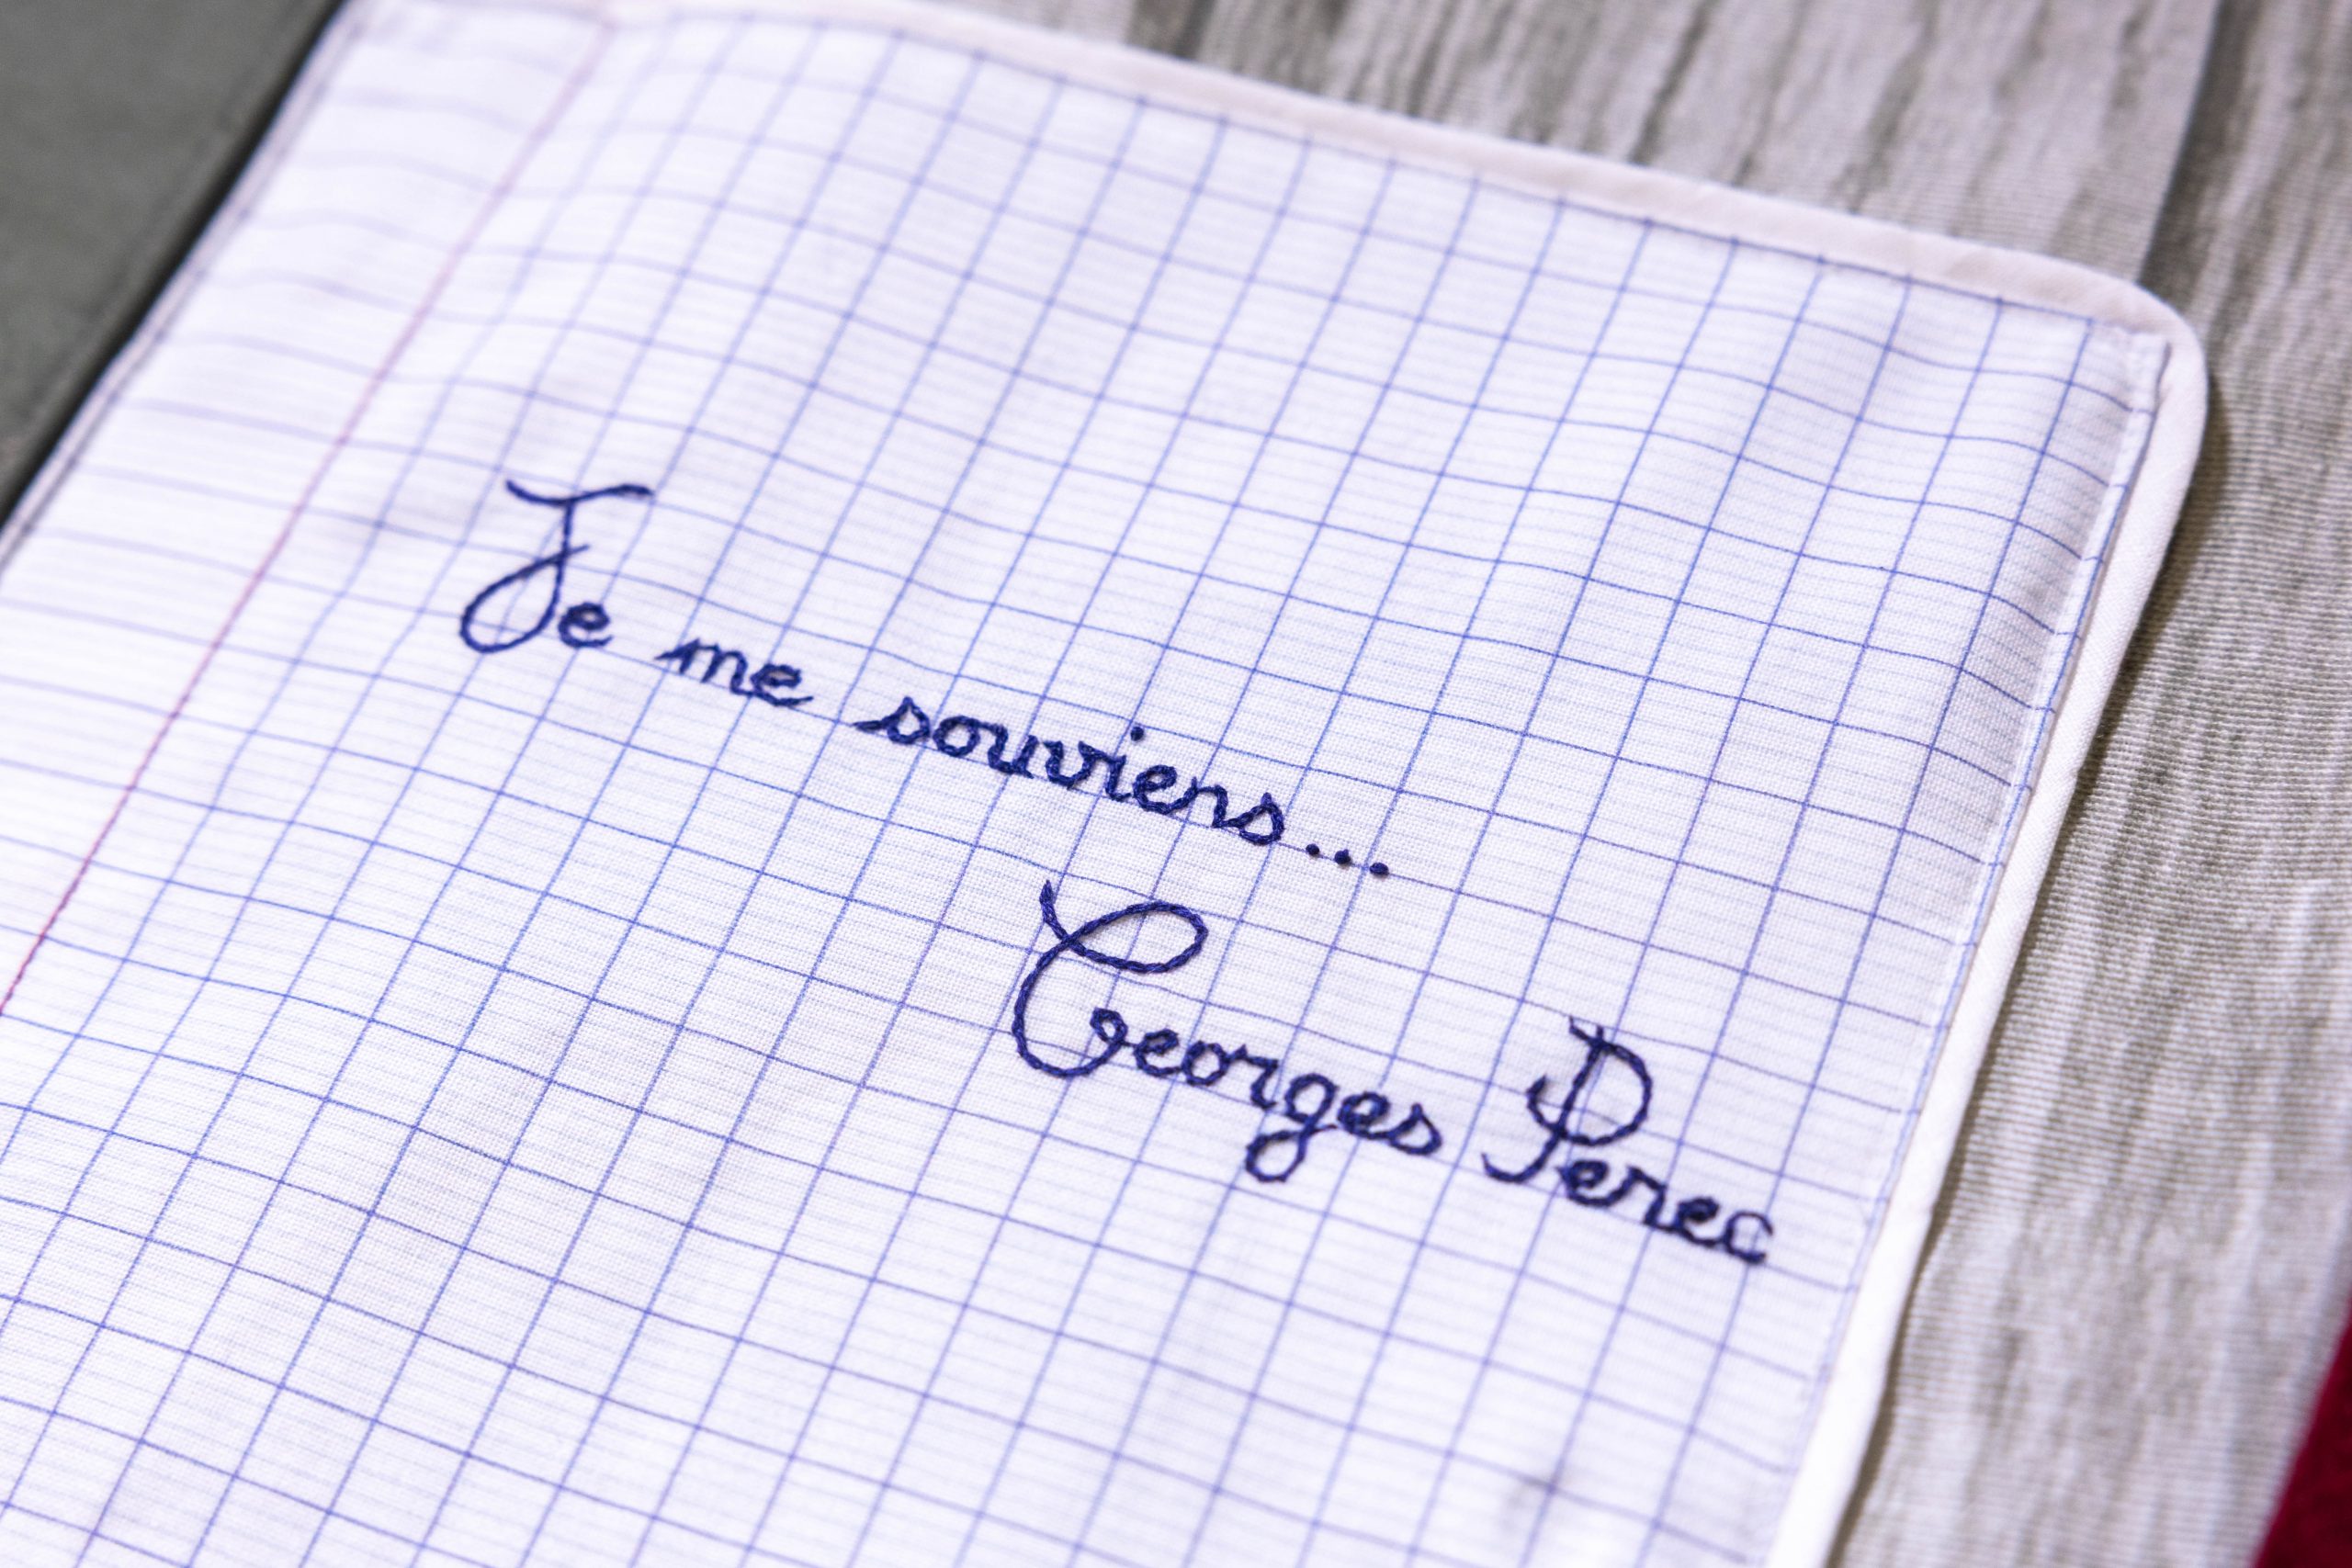 Je me souviens...
Georges Perec